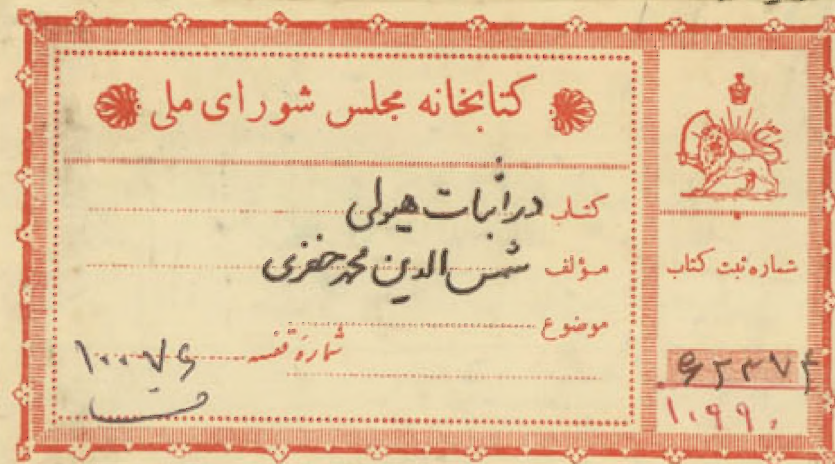 کتابخانه مجلس شورای ملی
کتاب در اثبات هیولی
مؤلف شمس الدین محمد خفری
موضوع
شماره قفسه ۱۰۰۷۶
شماره ثبت کتاب
۶۲۳۷۴
۱۰۹۹۰